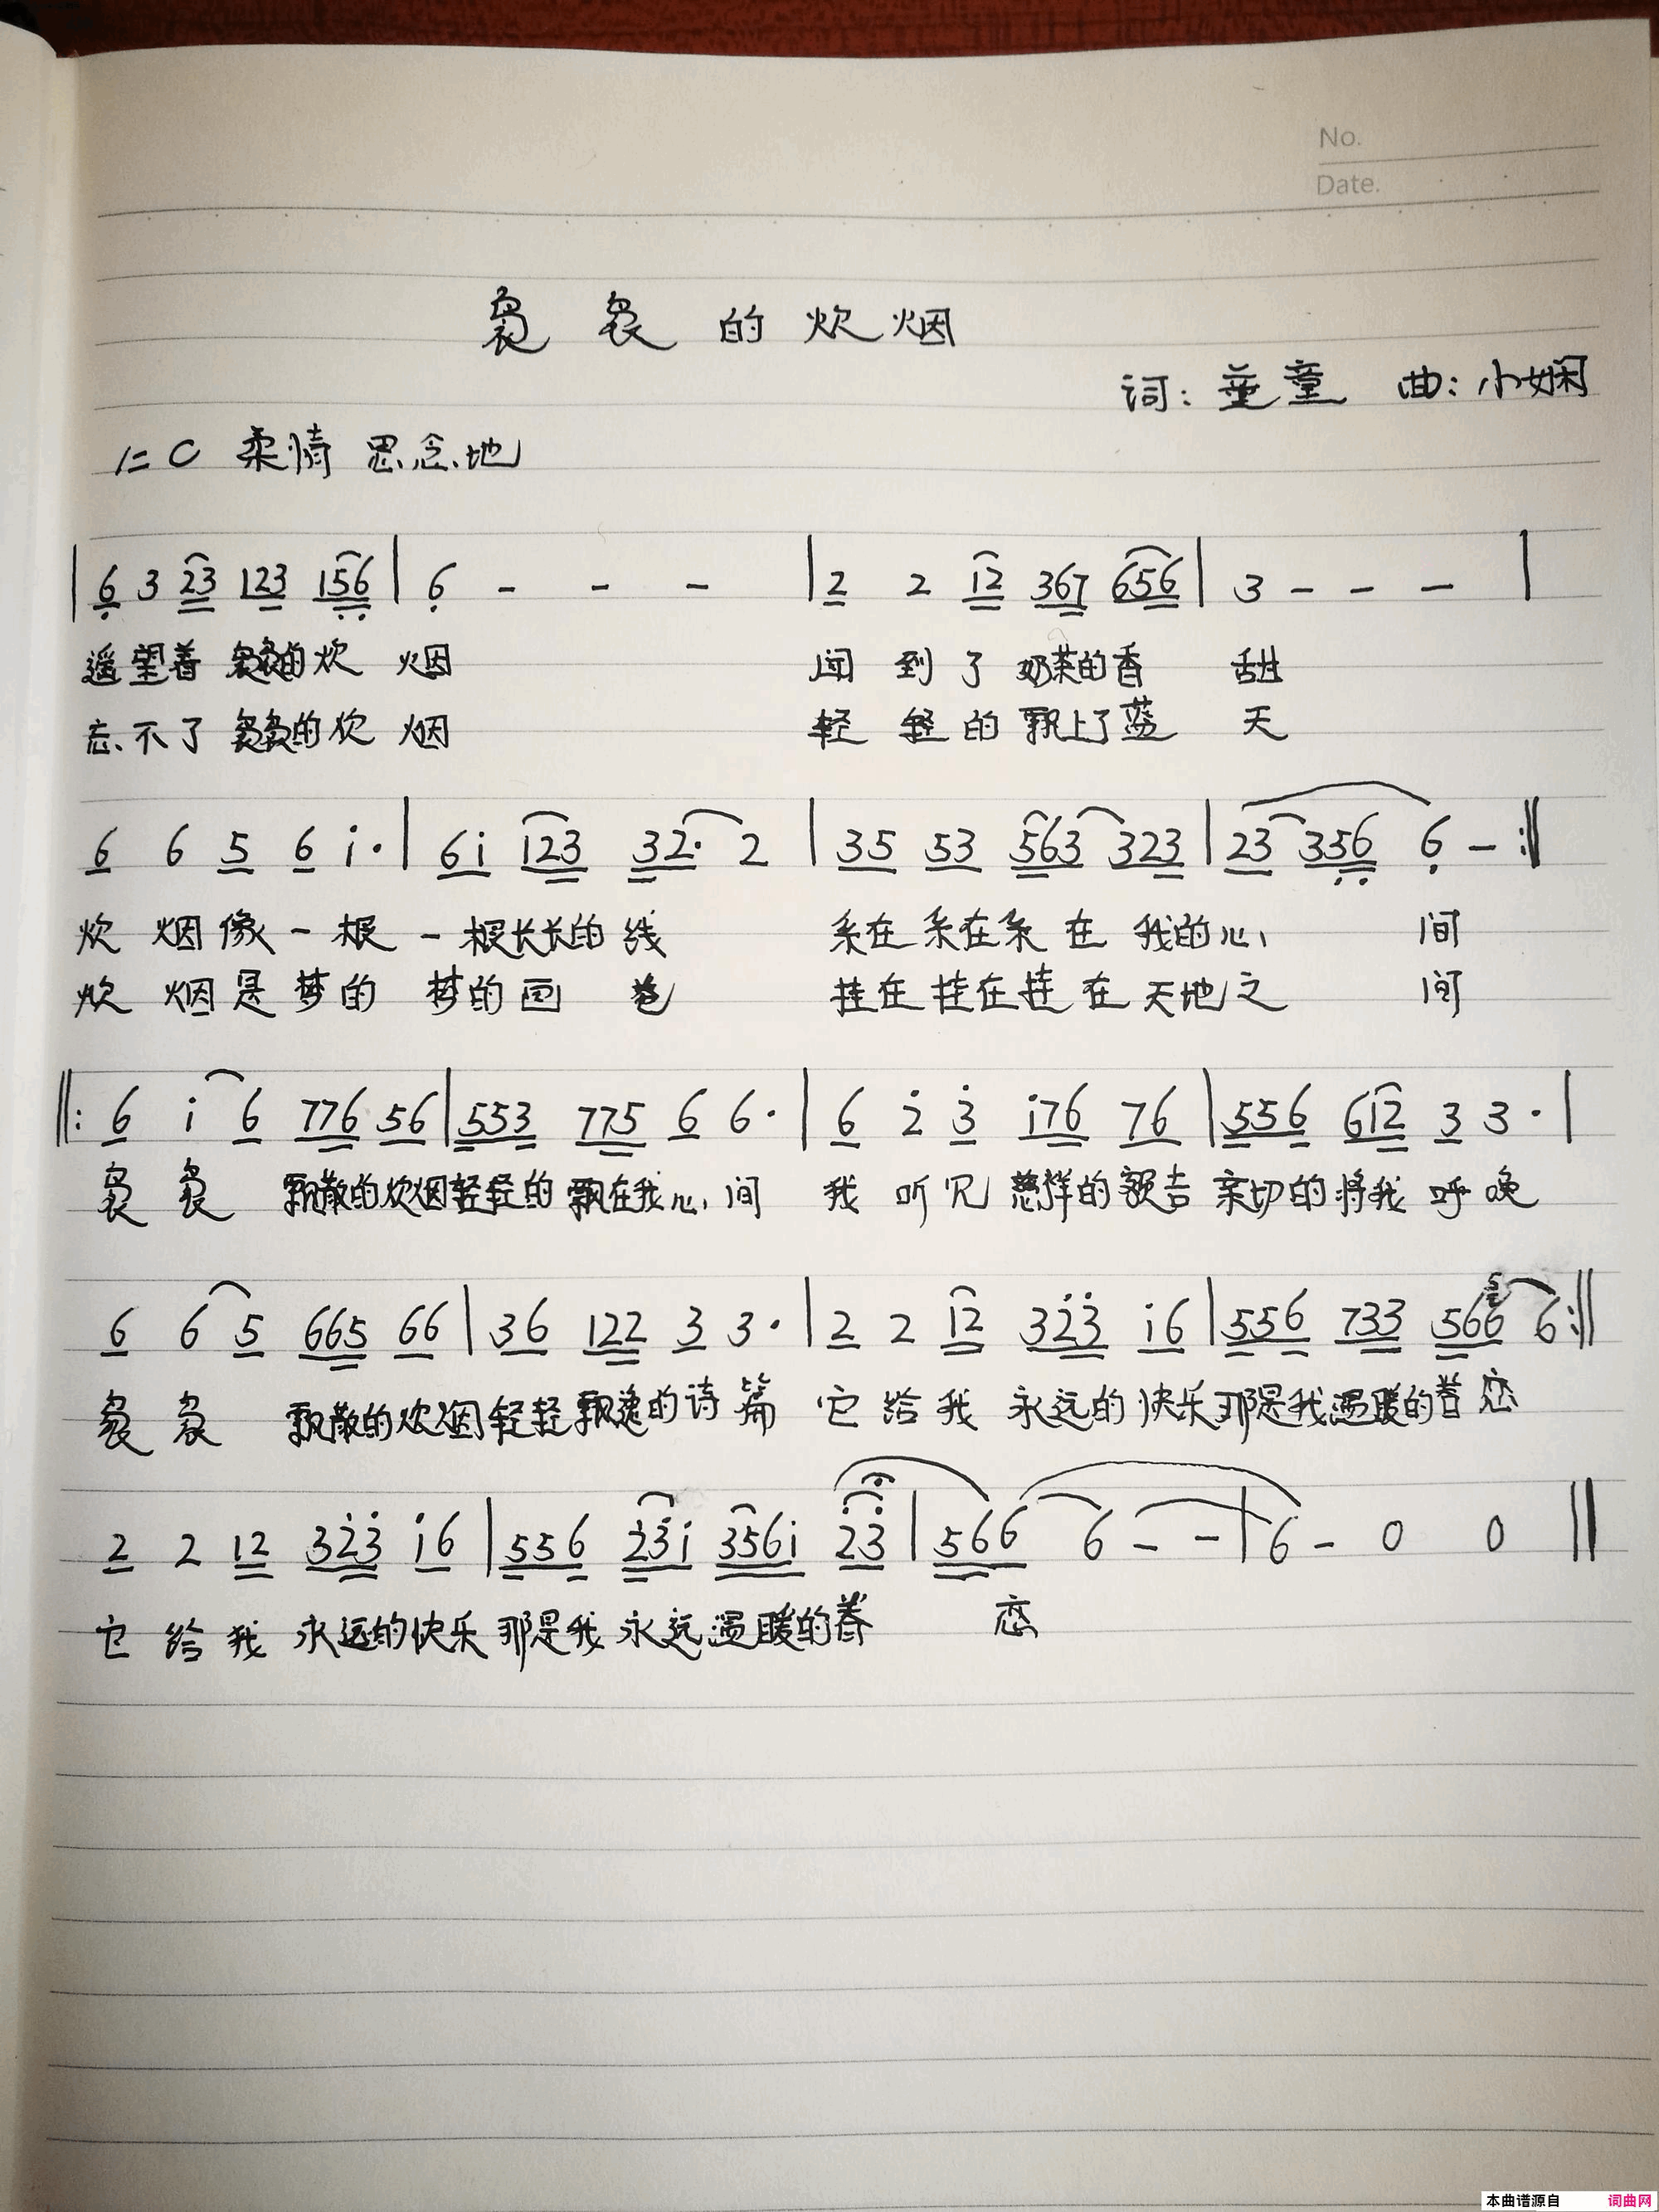 No.
Date.
袅袅的炊烟
词：董童 曲：小娴
1=C 柔情 思念地
|6 3 23 123 156|6 - - - |2 2 12 367 656|3 - - - |
遥望着 袅袅的炊 烟 闻到了 奶茶的香 甜
忘不了 袅袅的炊 烟 轻轻的 飘上了蓝 天
6 6 5 6 i·|6i 123 32· 2|35 53 563 323|23 356 6 - :‖
炊烟像一根 一根长长的线 系在系在系在 我的心 间
炊烟是梦的 梦的画卷 挂在挂在挂在 天地之 间
‖: 6 i 6 776 56|553 775 6 6·|6 2 3 i76 76|556 612 3 3·|
袅袅 飘散的炊烟轻轻的飘在我心间 我听见 慈祥的额吉 亲切的将我呼唤
6 6 5 665 66|36 122 3 3·|2 2 12 323 i6|556 733 566 6:‖
袅袅 飘散的炊烟轻轻飘逸的诗篇 它给我 永远的快乐那是我温暖的眷恋
2 2 12 323 i6|556 23i 356i 23|566 6 - -|6 - 0 0 ‖
它给我 永远的快乐 那是我 永远温暖的眷 恋
本曲谱源自 词曲网